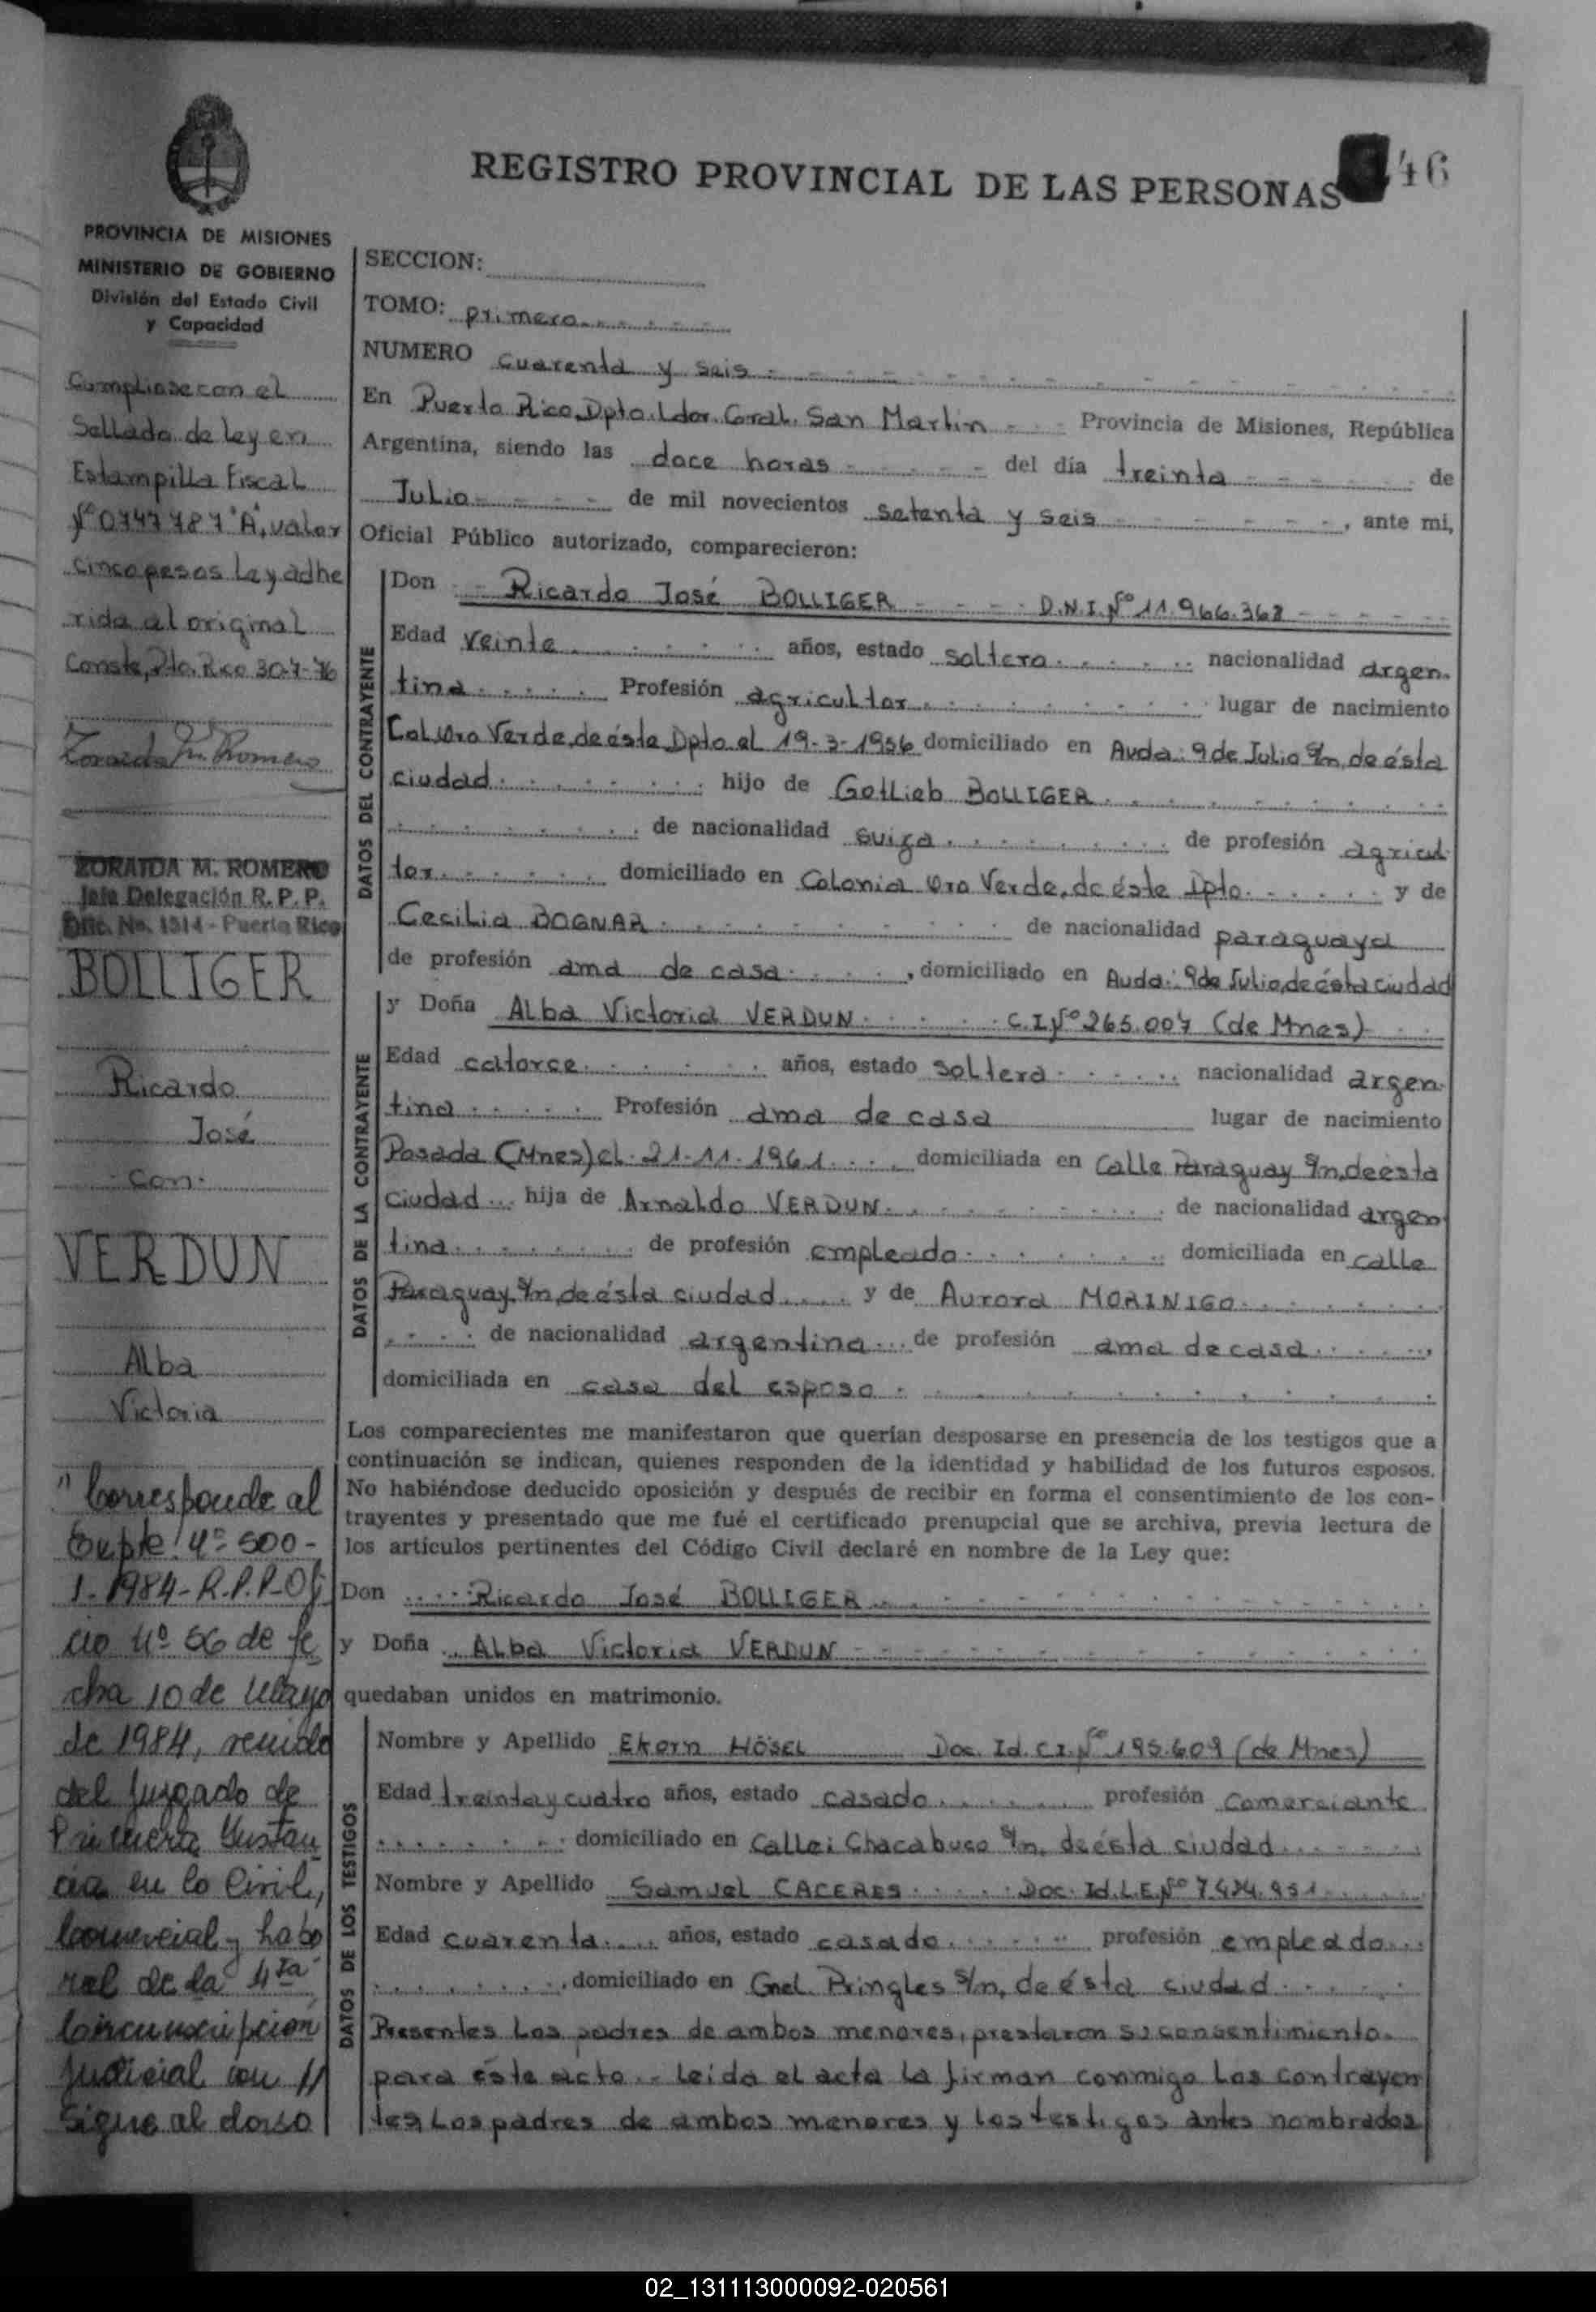 REGISTRO PROVINCIAL DE LAS PERSONAS
46
PROVINCIA DE MISIONES
MINISTERIO DE GOBIERNO
División del Estado Civil
y Capacidad
Cumpliose con el
Sellado de ley en
Estampilla Fiscal
Nº 0747787 "A", valor
cinco pesos Ley adhe
rida al original
Conste, Pto. Rico 30-7-76
Zoraida M. Romero
ZORAIDA M. ROMERO
Jefe Delegación R. P. P.
Dlic. No. 1514 - Puerto Rico
BOLLIGER
Ricardo
José
con
VERDUN
Alba
Victoria
"Corresponde al
Expte. Nº 500-
1-1984-R.P.P-Ofi
cio Nº 56 de fe
cha 10 de Mayo
de 1984, venido
del Juzgado de
Primera Instan
cia en lo Civil,
Comercial y Labo
ral de la 4ta
Circunscripción
Judicial con //
Sigue al dorso
SECCION:
TOMO: primero
NUMERO cuarenta y seis
En Puerto Rico, Dpto. Ldor. Gral. San Martin Provincia de Misiones, República
Argentina, siendo las doce horas del día treinta de
Julio de mil novecientos setenta y seis, ante mi,
Oficial Público autorizado, comparecieron:
DATOS DEL CONTRAYENTE
Don Ricardo José BOLLIGER D.N.I.Nº 11.966.368
Edad veinte años, estado soltero nacionalidad argen-
tina Profesión agricultor lugar de nacimiento
Col. Oro Verde, de éste Dpto el 19-3-1956 domiciliado en Avda: 9 de Julio S/n, de ésta
ciudad hijo de Gottlieb BOLLIGER
de nacionalidad suiza de profesión agricul
tor domiciliado en Colonia Oro Verde, de éste Dpto. y de
Cecilia BOGNAR de nacionalidad paraguaya
de profesión ama de casa, domiciliado en Avda: 9 de Julio, de ésta ciudad
DATOS DE LA CONTRAYENTE
y Doña Alba Victoria VERDUN C.I.Nº 265.007 (de Mnes)
Edad catorce años, estado soltera nacionalidad argen-
tina Profesión ama de casa lugar de nacimiento
Posada (Mnes) el 21-11-1961 domiciliada en Calle Paraguay S/n, de ésta
ciudad hija de Arnaldo VERDUN de nacionalidad argen
tina de profesión empleado domiciliada en calle
Paraguay S/n, de ésta ciudad y de Aurora MORINIGO
de nacionalidad argentina de profesión ama de casa,
domiciliada en casa del esposo
Los comparecientes me manifestaron que querían desposarse en presencia de los testigos que a
continuación se indican, quienes responden de la identidad y habilidad de los futuros esposos.
No habiéndose deducido oposición y después de recibir en forma el consentimiento de los con-
trayentes y presentado que me fué el certificado prenupcial que se archiva, previa lectura de
los artículos pertinentes del Código Civil declaré en nombre de la Ley que:
Don Ricardo José BOLLIGER
y Doña Alba Victoria VERDUN
quedaban unidos en matrimonio.
DATOS DE LOS TESTIGOS
Nombre y Apellido Ekern HÖSEL Doc. Id. C.I.Nº 195.609 (de Mnes)
Edad treinta y cuatro años, estado casado profesión comerciante
domiciliado en Calle: Chacabuco S/n, de ésta ciudad
Nombre y Apellido Samuel CACERES Doc. Id. L.E.Nº 7.474.951
Edad cuarenta años, estado casado profesión empleado
domiciliado en Cnel. Pringles S/n, de ésta ciudad
Presentes los padres de ambos menores, prestaron su consentimiento
para éste acto.- Leida el acta la firman conmigo los contrayen
tes, Los padres de ambos menores y los testigos antes nombrados
02_131113000092-020561